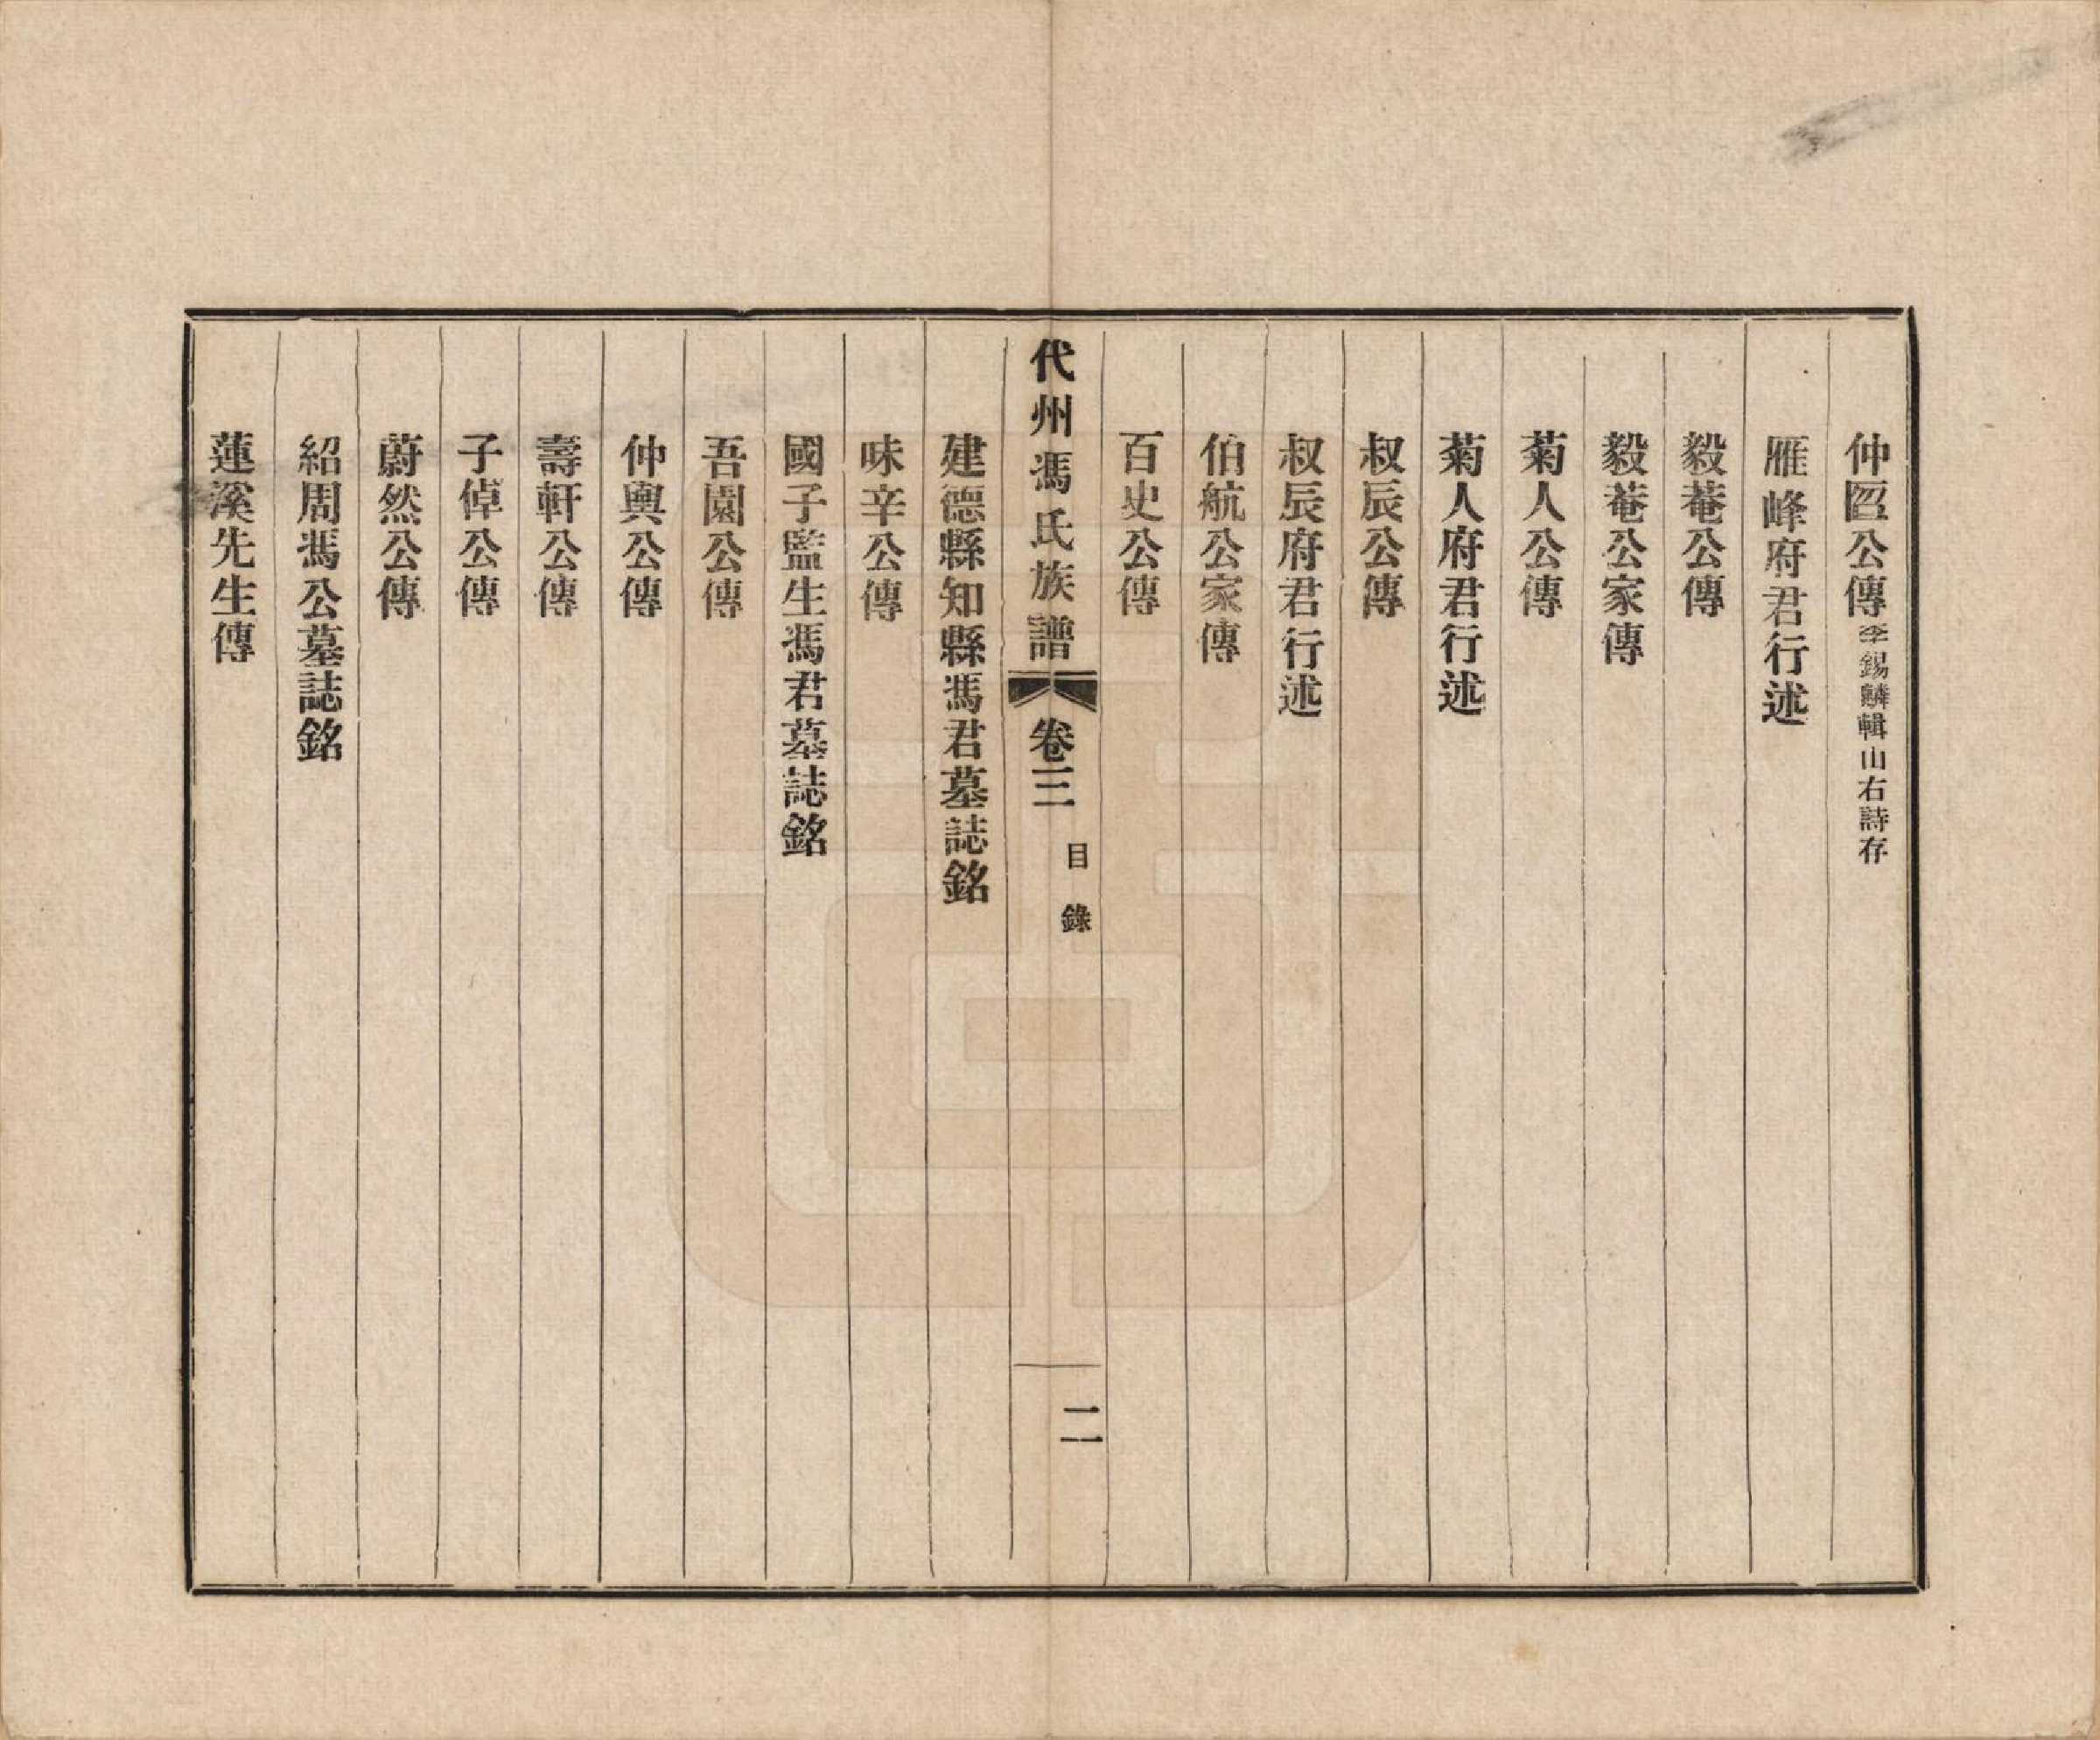 仲𠥓公傳李錫麟輯山右詩存
雁峰府君行述
毅菴公傳
毅菴公家傳
菊人公傳
菊人府君行述
叔辰公傳
叔辰府君行述
伯航公家傳
百史公傳
代州馮氏族譜 卷三 目錄 二
建德縣知縣馮君墓誌銘
味辛公傳
國子監生馮君墓誌銘
吾園公傳
仲輿公傳
壽軒公傳
子倬公傳
蔚然公傳
紹周馮公墓誌銘
蓮溪先生傳